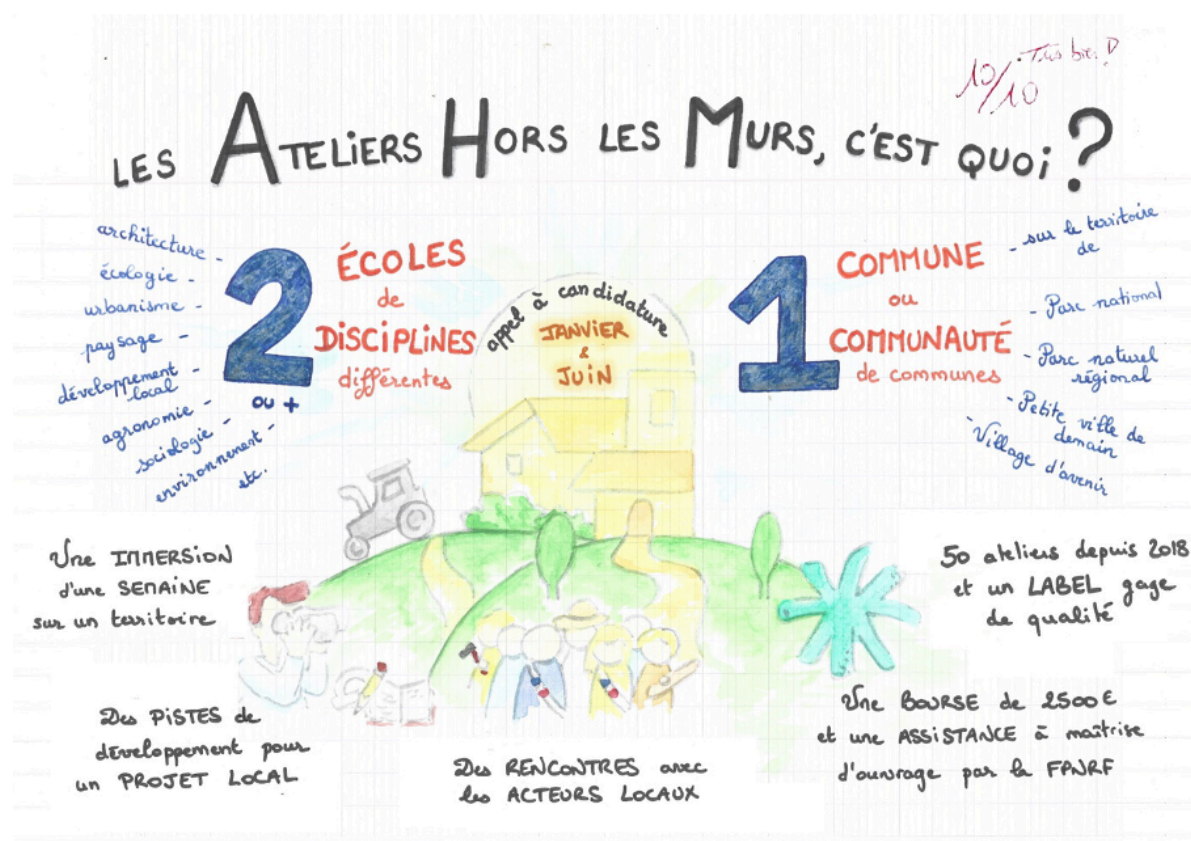 10/10 Très bien !
LES ATELIERS HORS LES MURS, C'EST QUOI ?
architecture -
écologie -
urbanisme -
paysage -
développement local -
agronomie -
sociologie -
environnement -
etc.
2
ou +
ÉCOLES
de
DISCIPLINES
différentes
appel à candidature
JANVIER
&
JUIN
1
COMMUNE
ou
COMMUNAUTÉ
de communes
- sur le territoire
de
- Parc national
- Parc naturel
régional
- Petite ville de
demain
- Village d'avenir
Une IMMERSION
d'une SEMAINE
sur un territoire
50 ateliers depuis 2018
et un LABEL gage
de qualité
Des PISTES de
développement pour
un PROJET LOCAL
Des RENCONTRES avec
les ACTEURS LOCAUX
Une BOURSE de 2500€
et une ASSISTANCE à maîtrise
d'ouvrage par la FPNRF